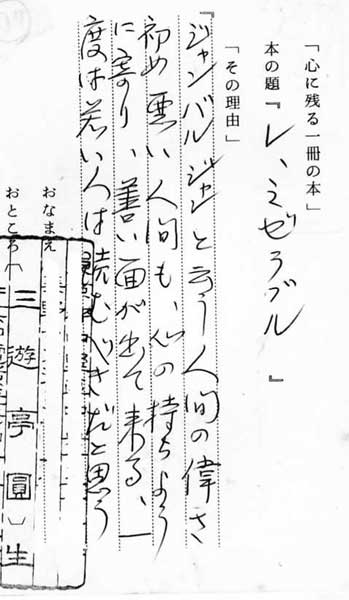 「心に残る一冊の本」
本の題『レ、ミゼラブル』
「その理由」
『ジャンバルジャンと云う人間の偉さ
初め悪い人間も、心の持ちよう
に寄り、善い面が出て来る、一
度は若い人は読むべきだと思う
おなまえ
おところ
三遊亭圓生